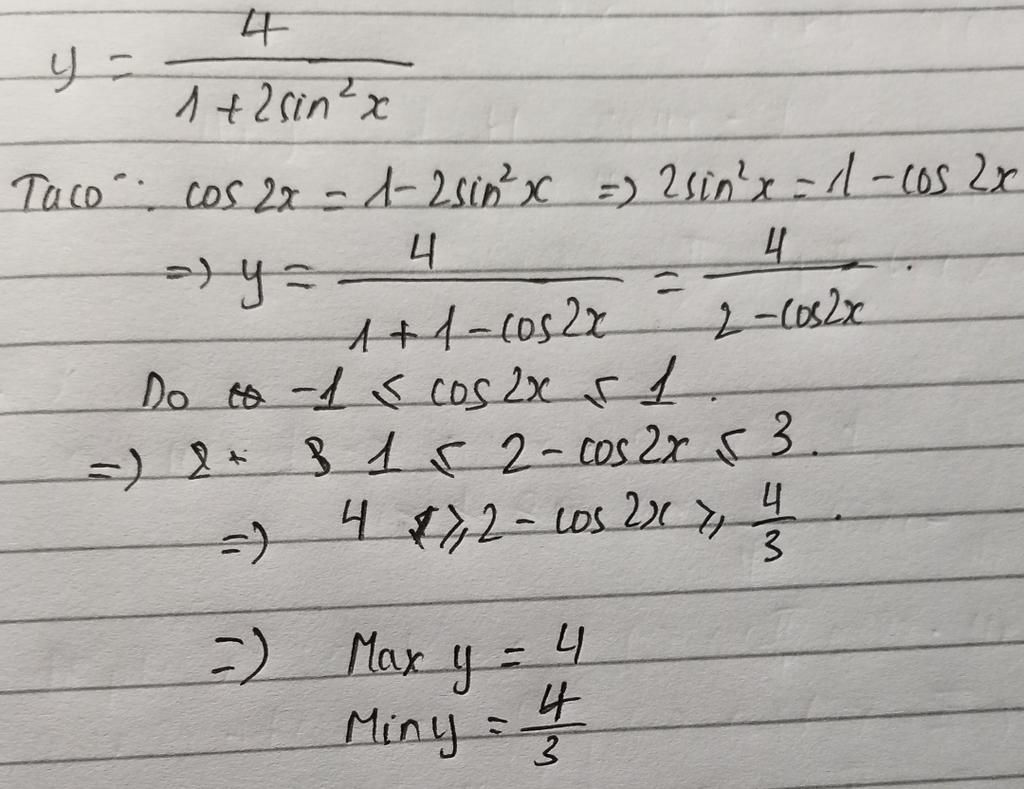 y = 4 / (1 + 2sin²x)
Ta có: cos 2x = 1 - 2sin²x => 2sin²x = 1 - cos 2x
=> y = 4 / (1 + 1 - cos2x) = 4 / (2 - cos2x) .
Do -1 ≤ cos 2x ≤ 1 .
=> 1 ≤ 2 - cos2x ≤ 3 .
=> 4 ≥ 2 - cos 2x ≥ 4/3 .
=> Max y = 4
Min y = 4/3